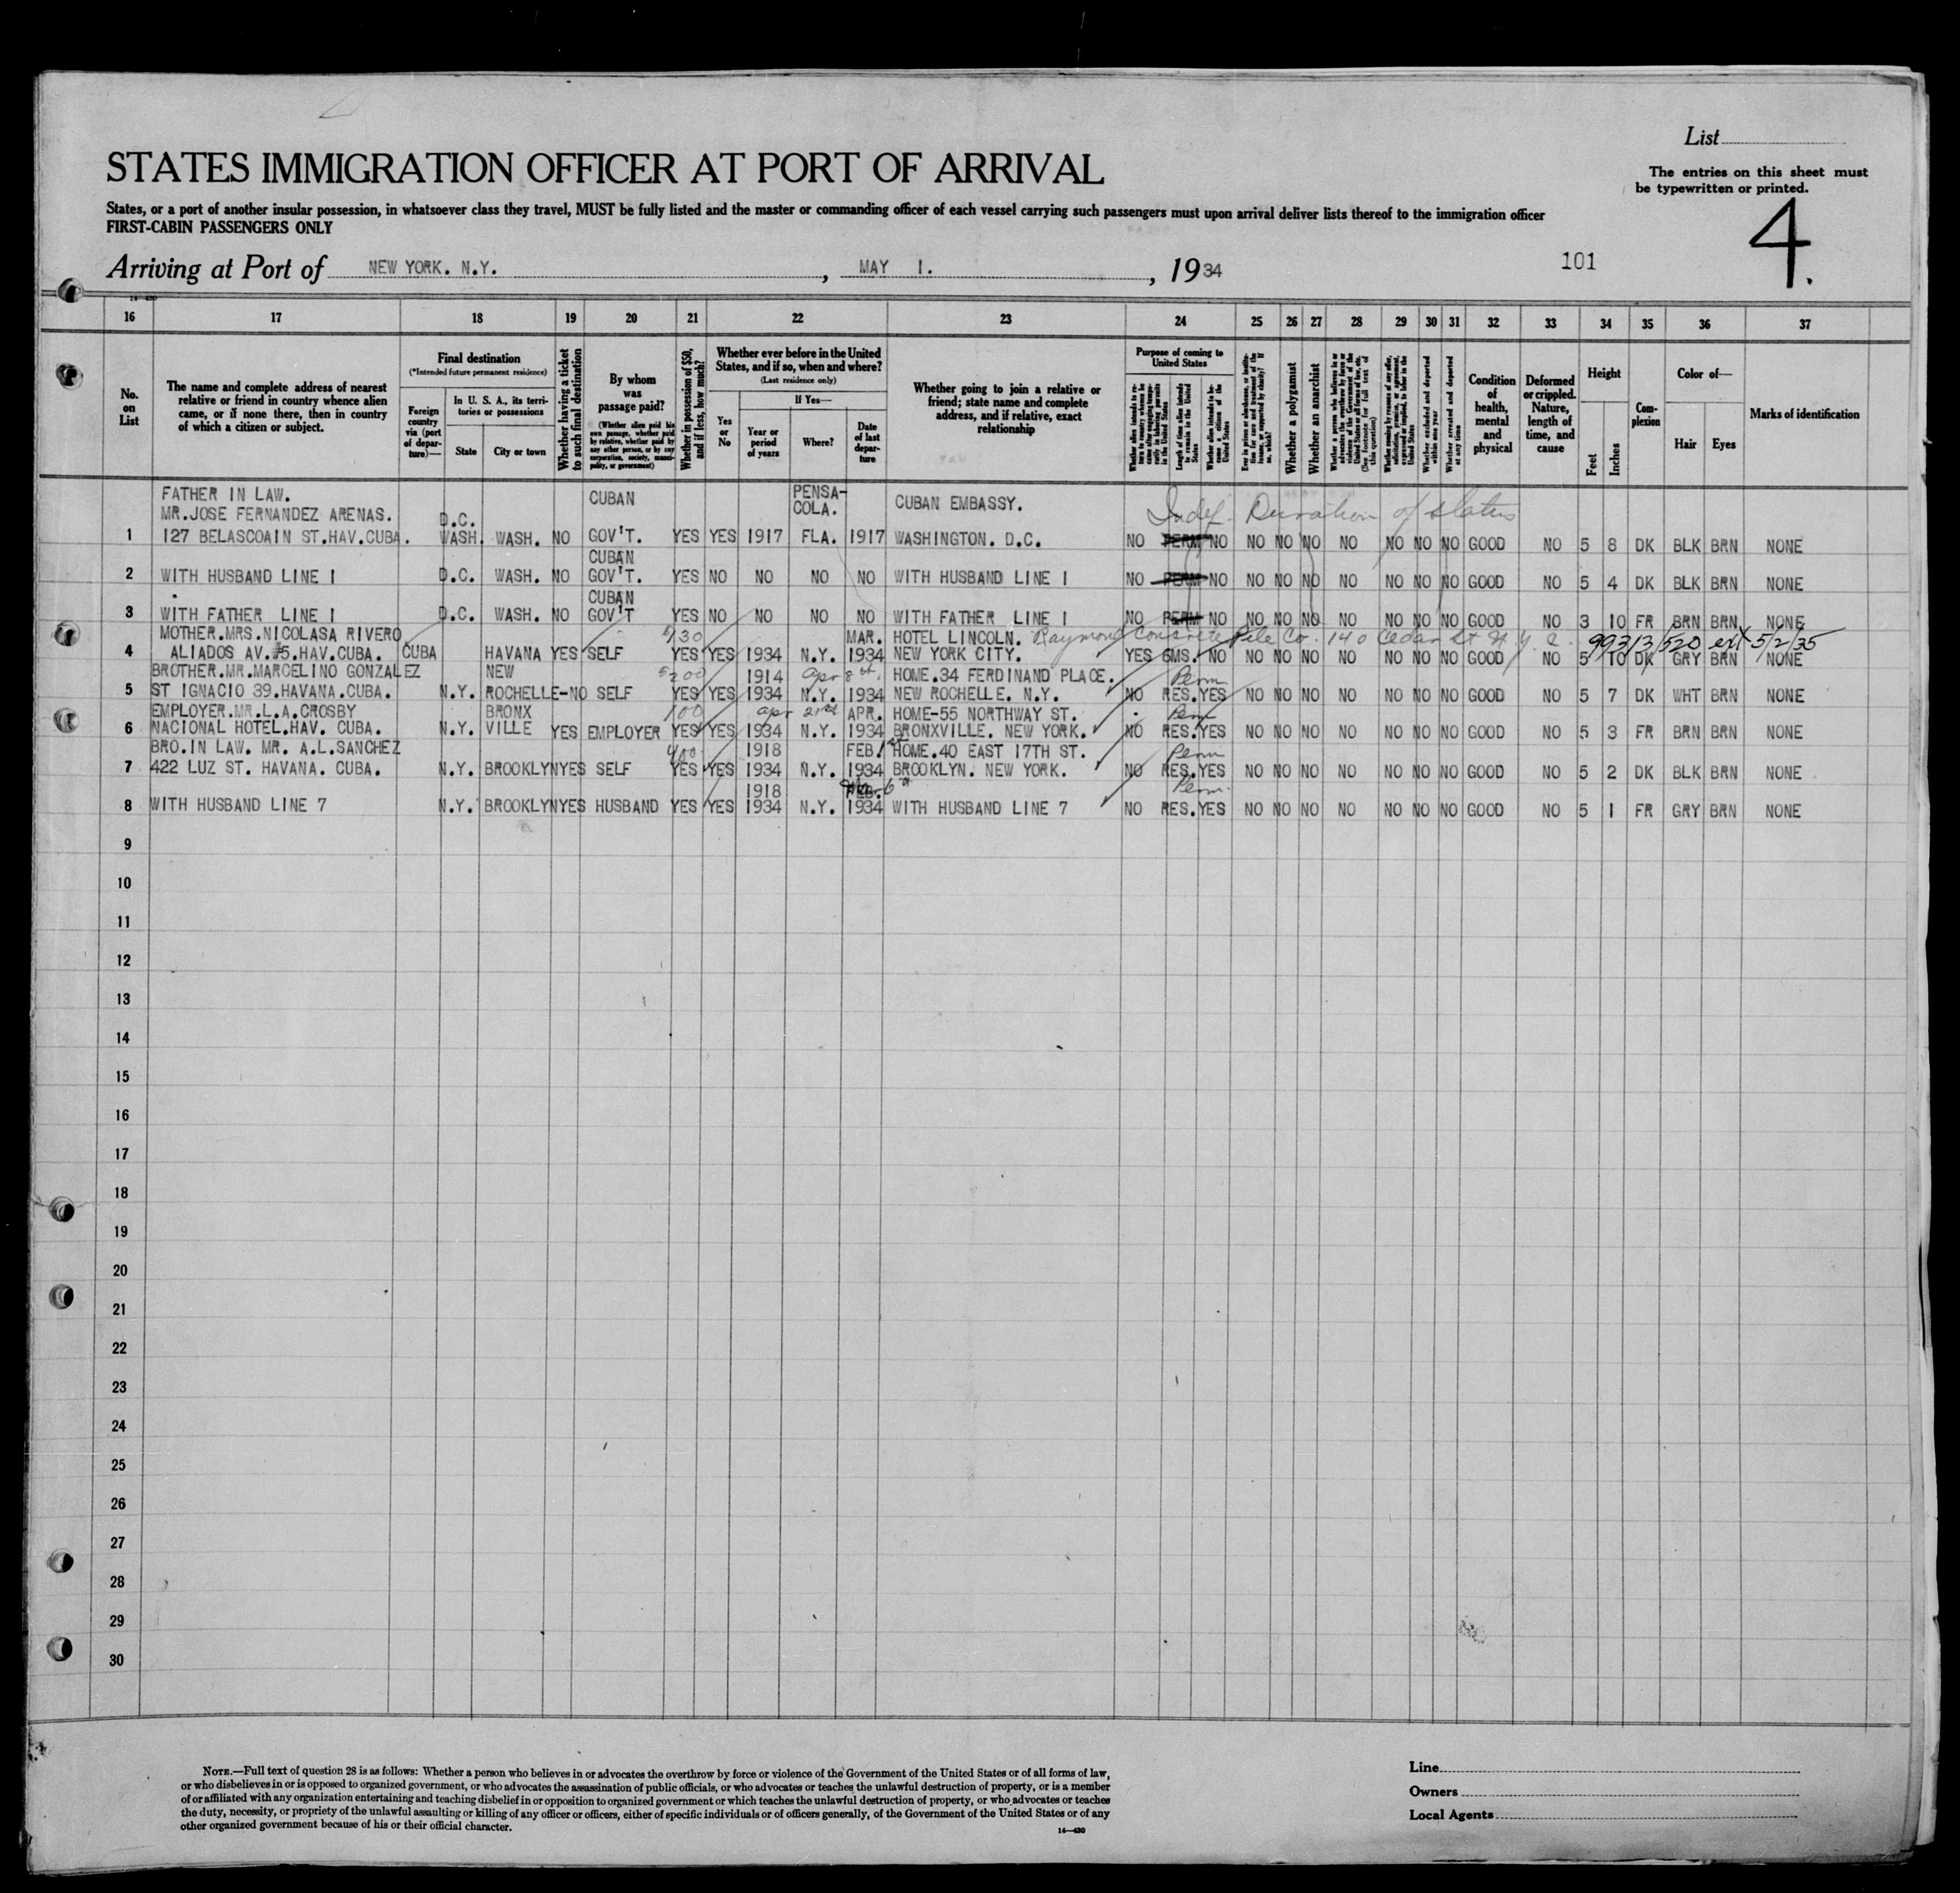 List
STATES IMMIGRATION OFFICER AT PORT OF ARRIVAL
The entries on this sheet must
be typewritten or printed.
States, or a port of another insular possession, in whatsoever class they travel, MUST be fully listed and the master or commanding officer of each vessel carrying such passengers must upon arrival deliver lists thereof to the immigration officer
FIRST-CABIN PASSENGERS ONLY
4.
Arriving at Port of NEW YORK. N.Y. , MAY 1. , 1934
101
16 17 18 19 20 21 22 23 24 25 26 27 28 29 30 31 32 33 34 35 36 37
No. on List
The name and complete address of nearest relative or friend in country whence alien came, or if none there, then in country of which a citizen or subject.
Final destination
(*Intended future permanent residence)
Foreign country via (port of departure)—
In U. S. A., its territories or possessions
State
City or town
Whether having a ticket to such final destination
By whom was passage paid?
(Whether alien paid his own passage, whether paid by relative, whether paid by any other person, or by any corporation, society, municipality, or government)
Whether in possession of $50, and if less, how much?
Whether ever before in the United States, and if so, when and where?
(Last residence only)
Yes or No
If Yes—
Year or period of years
Where?
Date of last departure
Whether going to join a relative or friend; state name and complete address, and if relative, exact relationship
Purpose of coming to United States
Whether a polygamist
Whether an anarchist
Condition of health, mental and physical
Deformed or crippled. Nature, length of time, and cause
Height
Feet
Inches
Complexion
Color of—
Hair
Eyes
Marks of identification
FATHER IN LAW. CUBAN PENSA- CUBAN EMBASSY. Indef. Duration of Status
MR.JOSE FERNANDEZ ARENAS. D.C. COLA.
1 127 BELASCOAIN ST.HAV.CUBA. WASH. WASH. NO GOV'T. YES YES 1917 FLA. 1917 WASHINGTON. D.C. NO PERM NO NO NO NO NO NO NO NO GOOD NO 5 8 DK BLK BRN NONE
CUBAN
2 WITH HUSBAND LINE 1 D.C. WASH. NO GOV'T. YES NO NO NO NO WITH HUSBAND LINE 1 NO PERM NO NO NO NO NO NO NO NO GOOD NO 5 4 DK BLK BRN NONE
CUBAN
3 WITH FATHER LINE 1 D.C. WASH. NO GOV'T YES NO NO NO NO WITH FATHER LINE 1 NO PERM NO NO NO NO NO NO NO NO GOOD NO 3 10 FR BRN BRN NONE
MOTHER.MRS.NICOLASA RIVERO $130 MAR. HOTEL LINCOLN. Raymond Concrete Pile Co. 140 Cedar St N.Y. 99313/520 ext 5/2/35
4 ALIADOS AV.#5.HAV.CUBA. CUBA HAVANA YES SELF YES YES 1934 N.Y. 1934 NEW YORK CITY. YES 6MS. NO NO NO NO NO NO NO NO GOOD NO 5 10 DK GRY BRN NONE
BROTHER.MR.MARCELINO GONZALEZ NEW $200 1914 Apr 8th. HOME.34 FERDINAND PLACE. Perm
5 ST IGNACIO 39.HAVANA.CUBA. N.Y. ROCHELLE-NO SELF YES YES 1934 N.Y. 1934 NEW ROCHELLE. N.Y. NO RES. YES NO NO NO NO NO NO NO GOOD NO 5 7 DK WHT BRN NONE
EMPLOYER.MR.L.A.CROSBY BRONX 100 apr 21st APR. HOME-55 NORTHWAY ST. Perm
6 NACIONAL HOTEL.HAV. CUBA. N.Y. VILLE YES EMPLOYER YES YES 1934 N.Y. 1934 BRONXVILLE. NEW YORK. NO RES. YES NO NO NO NO NO NO NO GOOD NO 5 3 FR BRN BRN NONE
BRO.IN LAW. MR. A.L.SANCHEZ 400 1918 FEB. HOME.40 EAST 17TH ST. Perm
7 422 LUZ ST. HAVANA. CUBA. N.Y. BROOKLYN YES SELF YES YES 1934 N.Y. 1934 BROOKLYN. NEW YORK. NO RES. YES NO NO NO NO NO NO NO GOOD NO 5 2 DK BLK BRN NONE
1918 FEB. 6th Perm.
8 WITH HUSBAND LINE 7 N.Y. BROOKLYN YES HUSBAND YES YES 1934 N.Y. 1934 WITH HUSBAND LINE 7 NO RES. YES NO NO NO NO NO NO NO GOOD NO 5 1 FR GRY BRN NONE
9
10
11
12
13
14
15
16
17
18
19
20
21
22
23
24
25
26
27
28
29
30
NOTE.—Full text of question 28 is as follows: Whether a person who believes in or advocates the overthrow by force or violence of the Government of the United States or of all forms of law,
or who disbelieves in or is opposed to organized government, or who advocates the assassination of public officials, or who advocates or teaches the unlawful destruction of property, or is a member
of or affiliated with any organization entertaining and teaching disbelief in or opposition to organized government or which teaches the unlawful destruction of property, or who advocates or teaches
the duty, necessity, or propriety of the unlawful assaulting or killing of any officer or officers, either of specific individuals or of officers generally, of the Government of the United States or of any
other organized government because of his or their official character.
14—430
Line
Owners
Local Agents